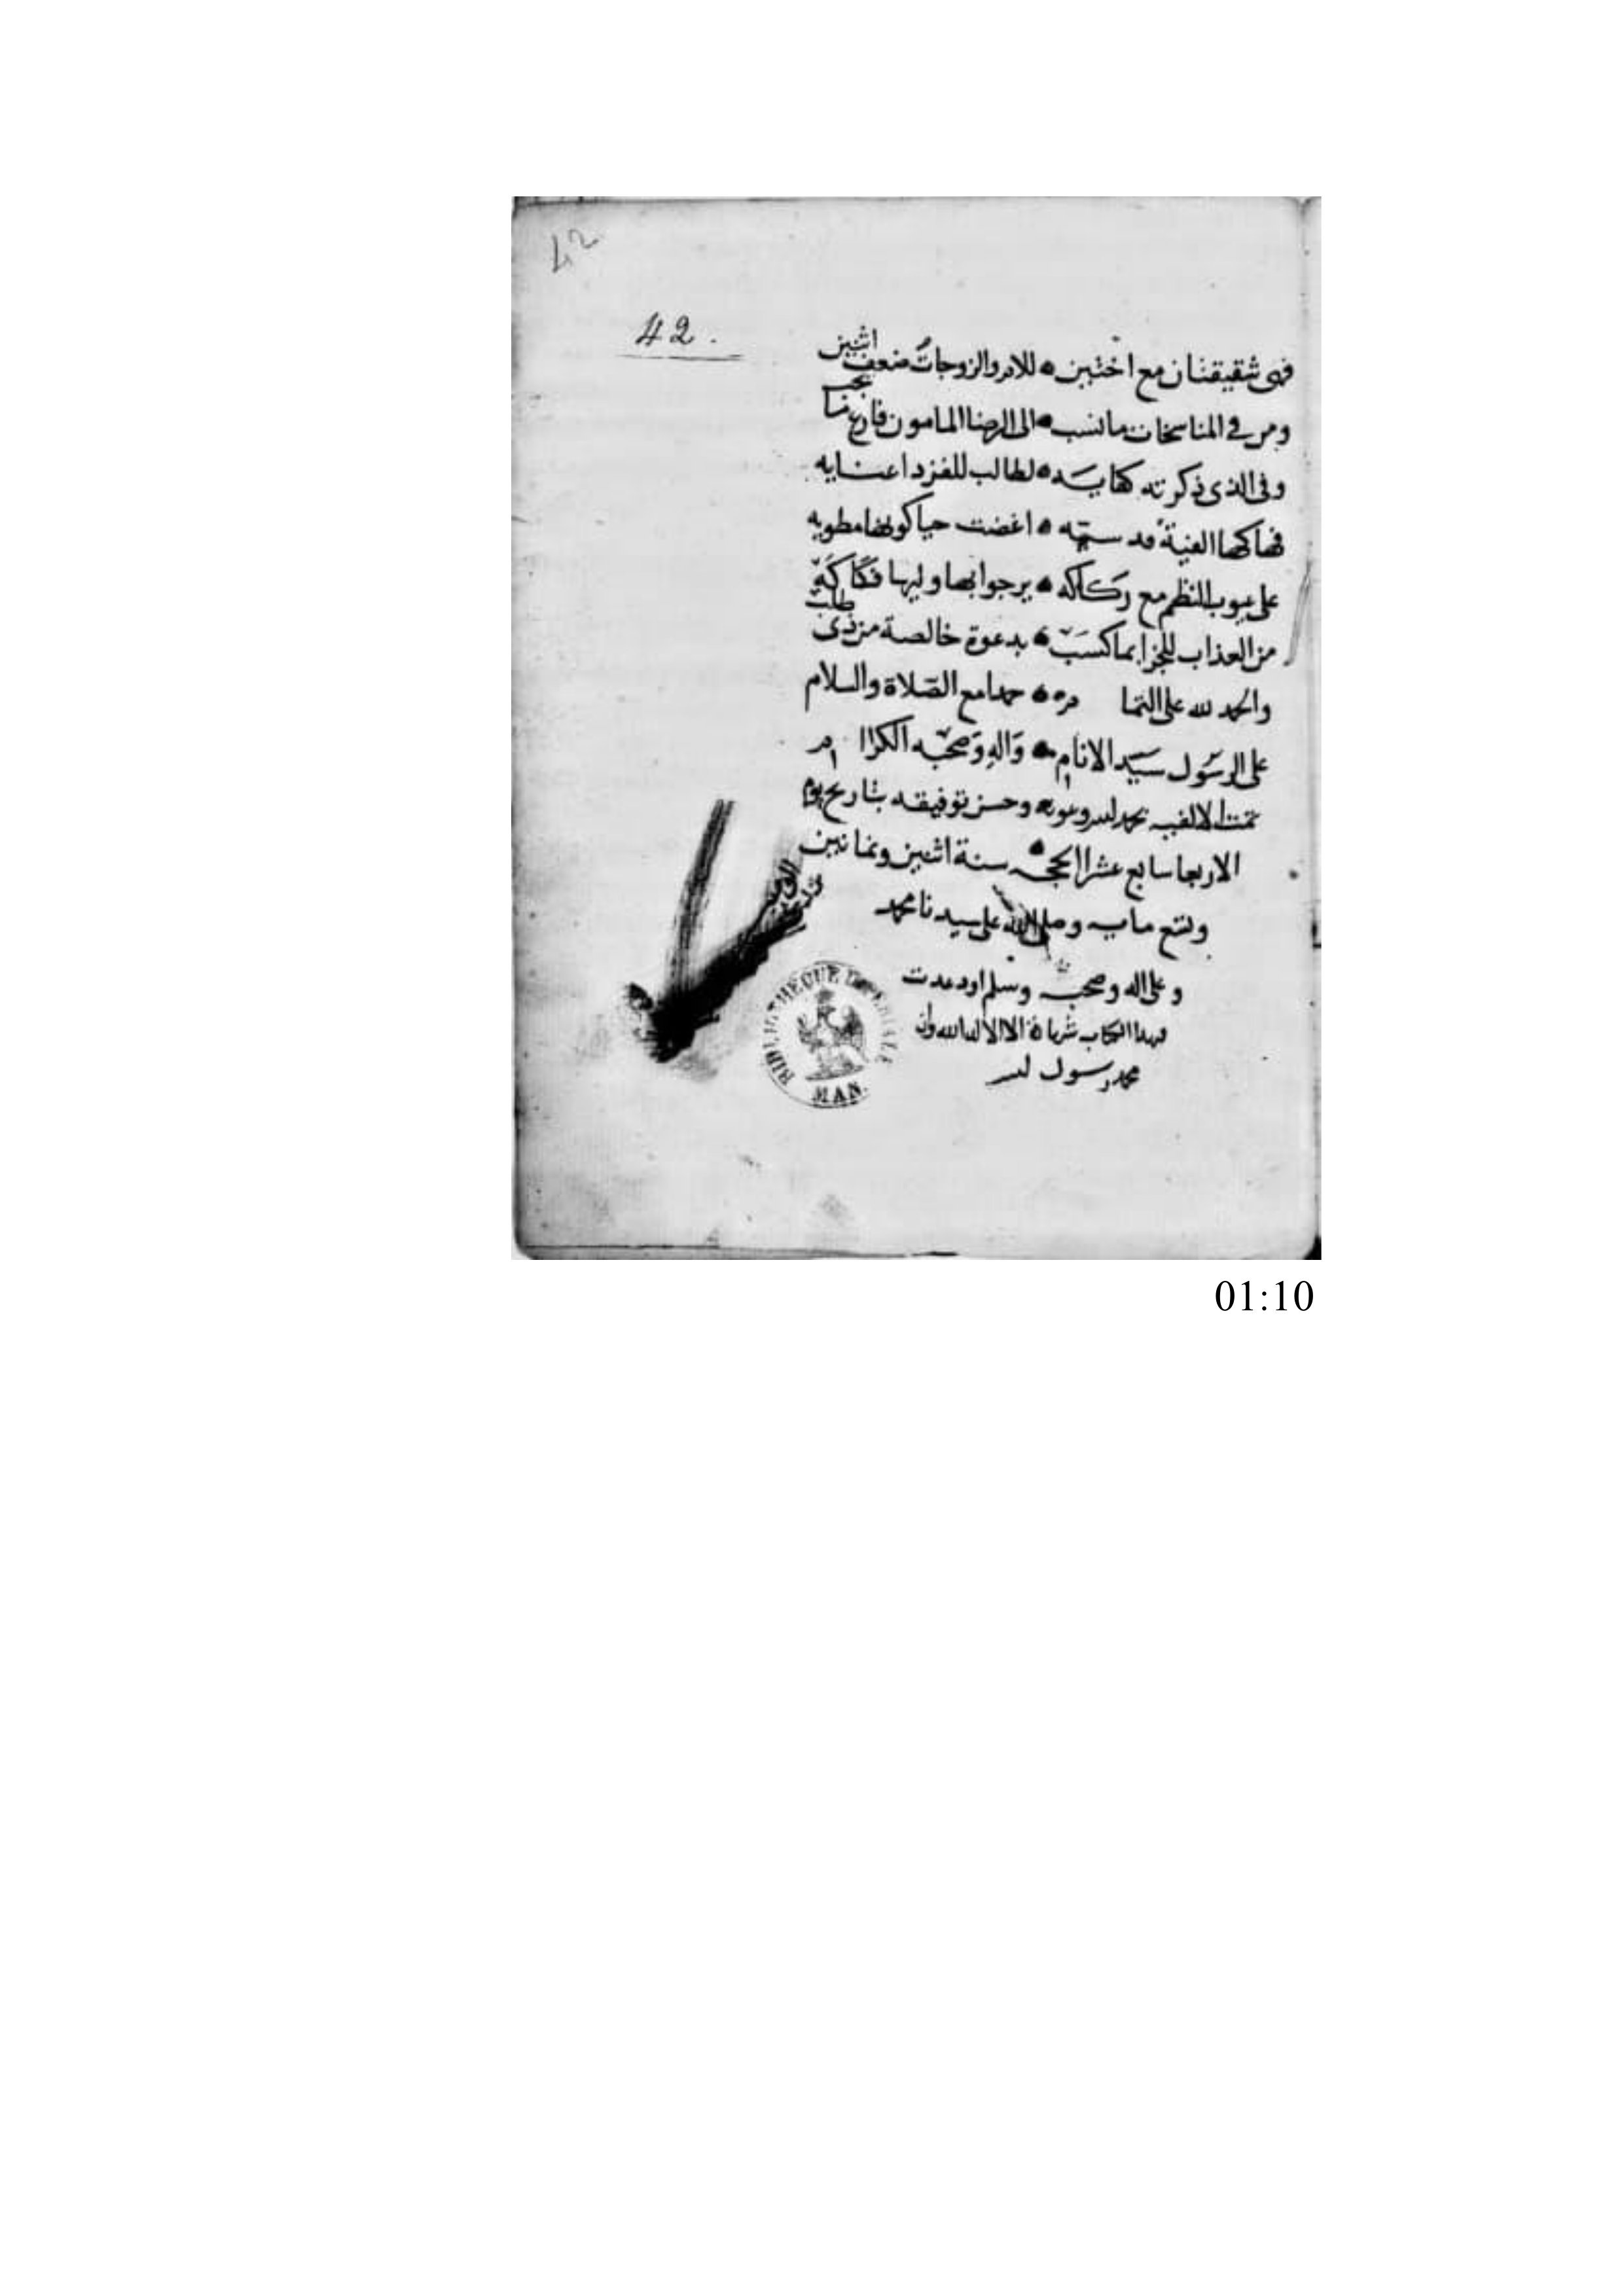 42
42.
فهى شقيقتان مع اختين ه للام والزوجات ضعف اثنين
ومن فى المناسخات مانسب ه الى الرضا المامون فارع ما يجب
وفى الذى ذكرته كفايه ه لطالب للفرد اعنايه
فهاكها الفية قد سميه ه اغضت حيا كونها مطويه
على عيوب النظم مع ركاكه ه يرجوا بها وليها فكاكه
من العذاب للجزا بما كسب ه بدعوة خالصة من ذى طلب
والحمد لله على التما م ه حمدا مع الصلاة والسلام
على الرسول سيد الانام ه واله وصحبه الكرا ام
تمت الالفيه بحمد الله وعونه وحسن توفيقه بتاريخ يوم
الاربعا سابع عشر الحجه سنة اثنين وثمانين
وتسع مايه وصلى الله على سيدنا محمد
وعلى اله وصحبه وسلم اودعت
فهذا الكتاب شهادة الا اله الا الله وان
محمد رسول الله
BIBLIOTHEQUE IMPERIALE
MAN.
01:10